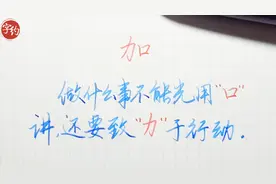 字约
加
做什么事不能光用“口”
讲,还要致“力”于行动.